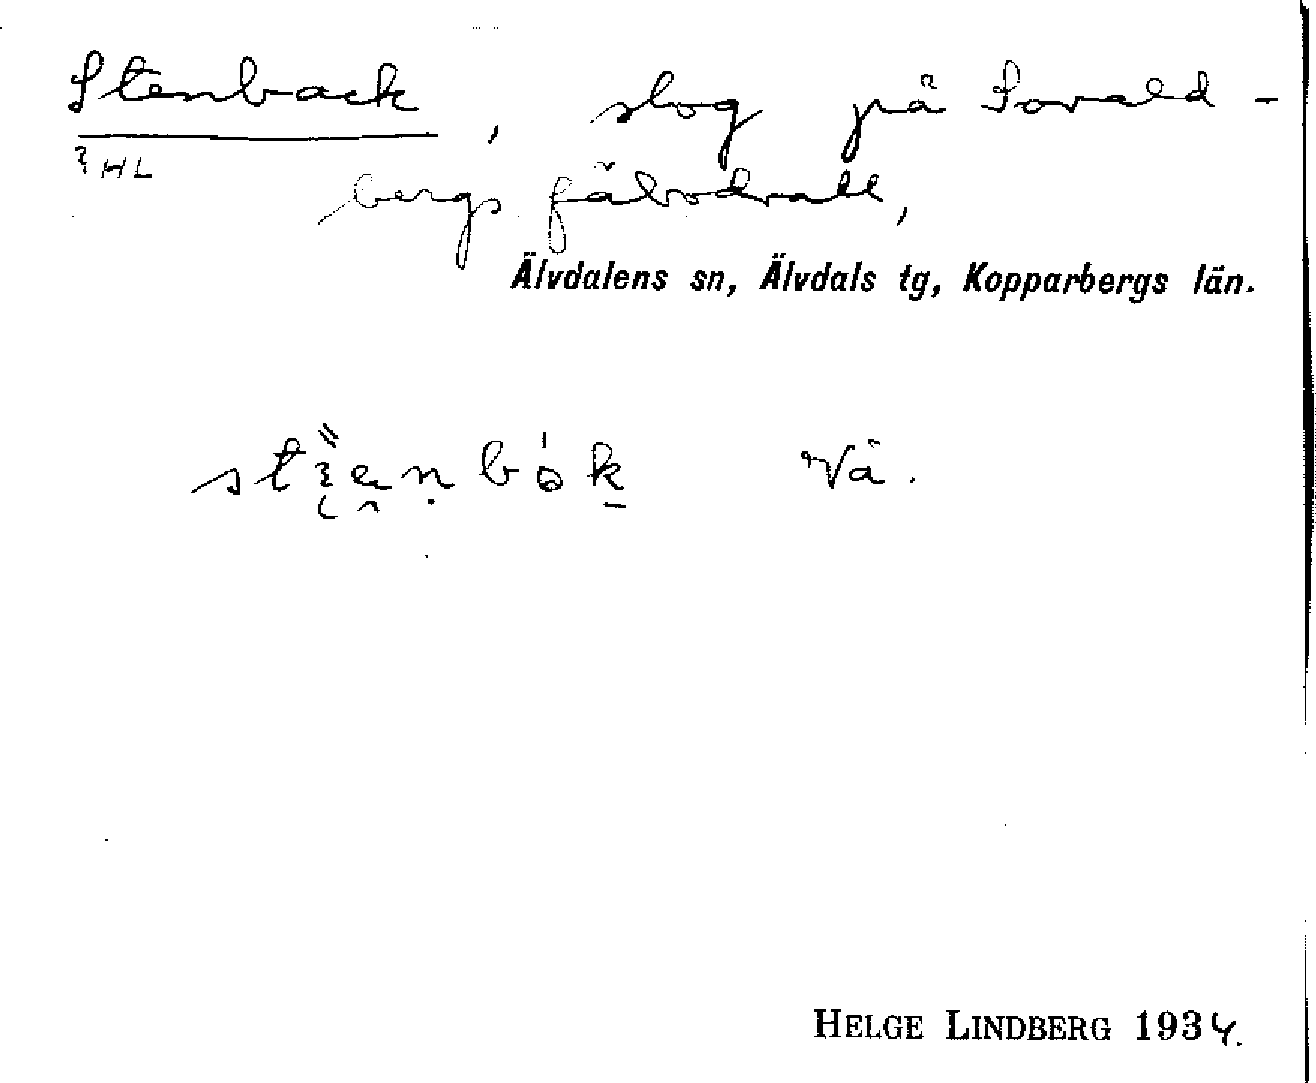 Stenback, slog på Sovald-
? HL
bergs fäbodvall,
Älvdalens sn, Älvdals tg, Kopparbergs län.
Vä.
HELGE LINDBERG 1934.